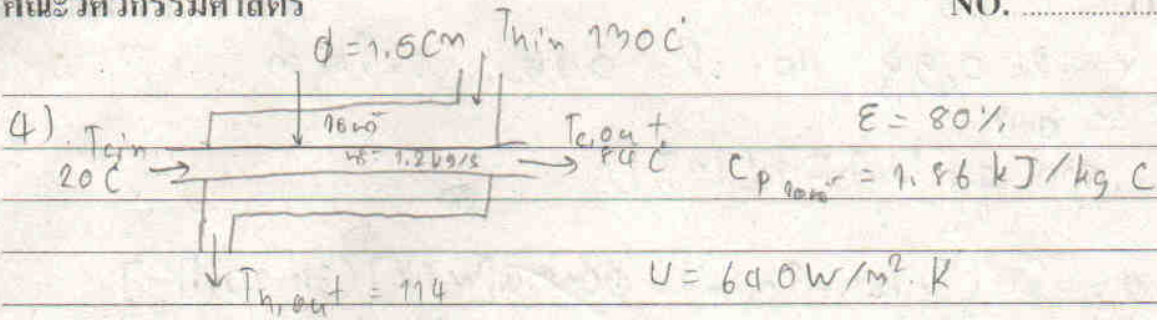 คณะวิศวกรรมศาสตร์ NO.
φ = 1.5cm Th,in 130C
4) Tc,in 20C ไอน้ำ ṁ = 1.2 kg/s Tc,out 84C ε = 80%
Cp ไอน้ำ = 1.86 kJ/kg C
Th,out = 114 U = 640 W/m². K